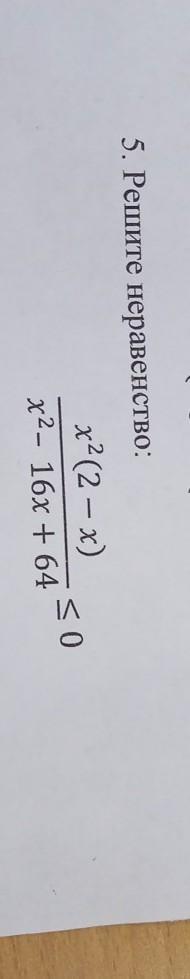 5. Решите неравенство:
x²(2 − x)
x² − 16x + 64
≤ 0